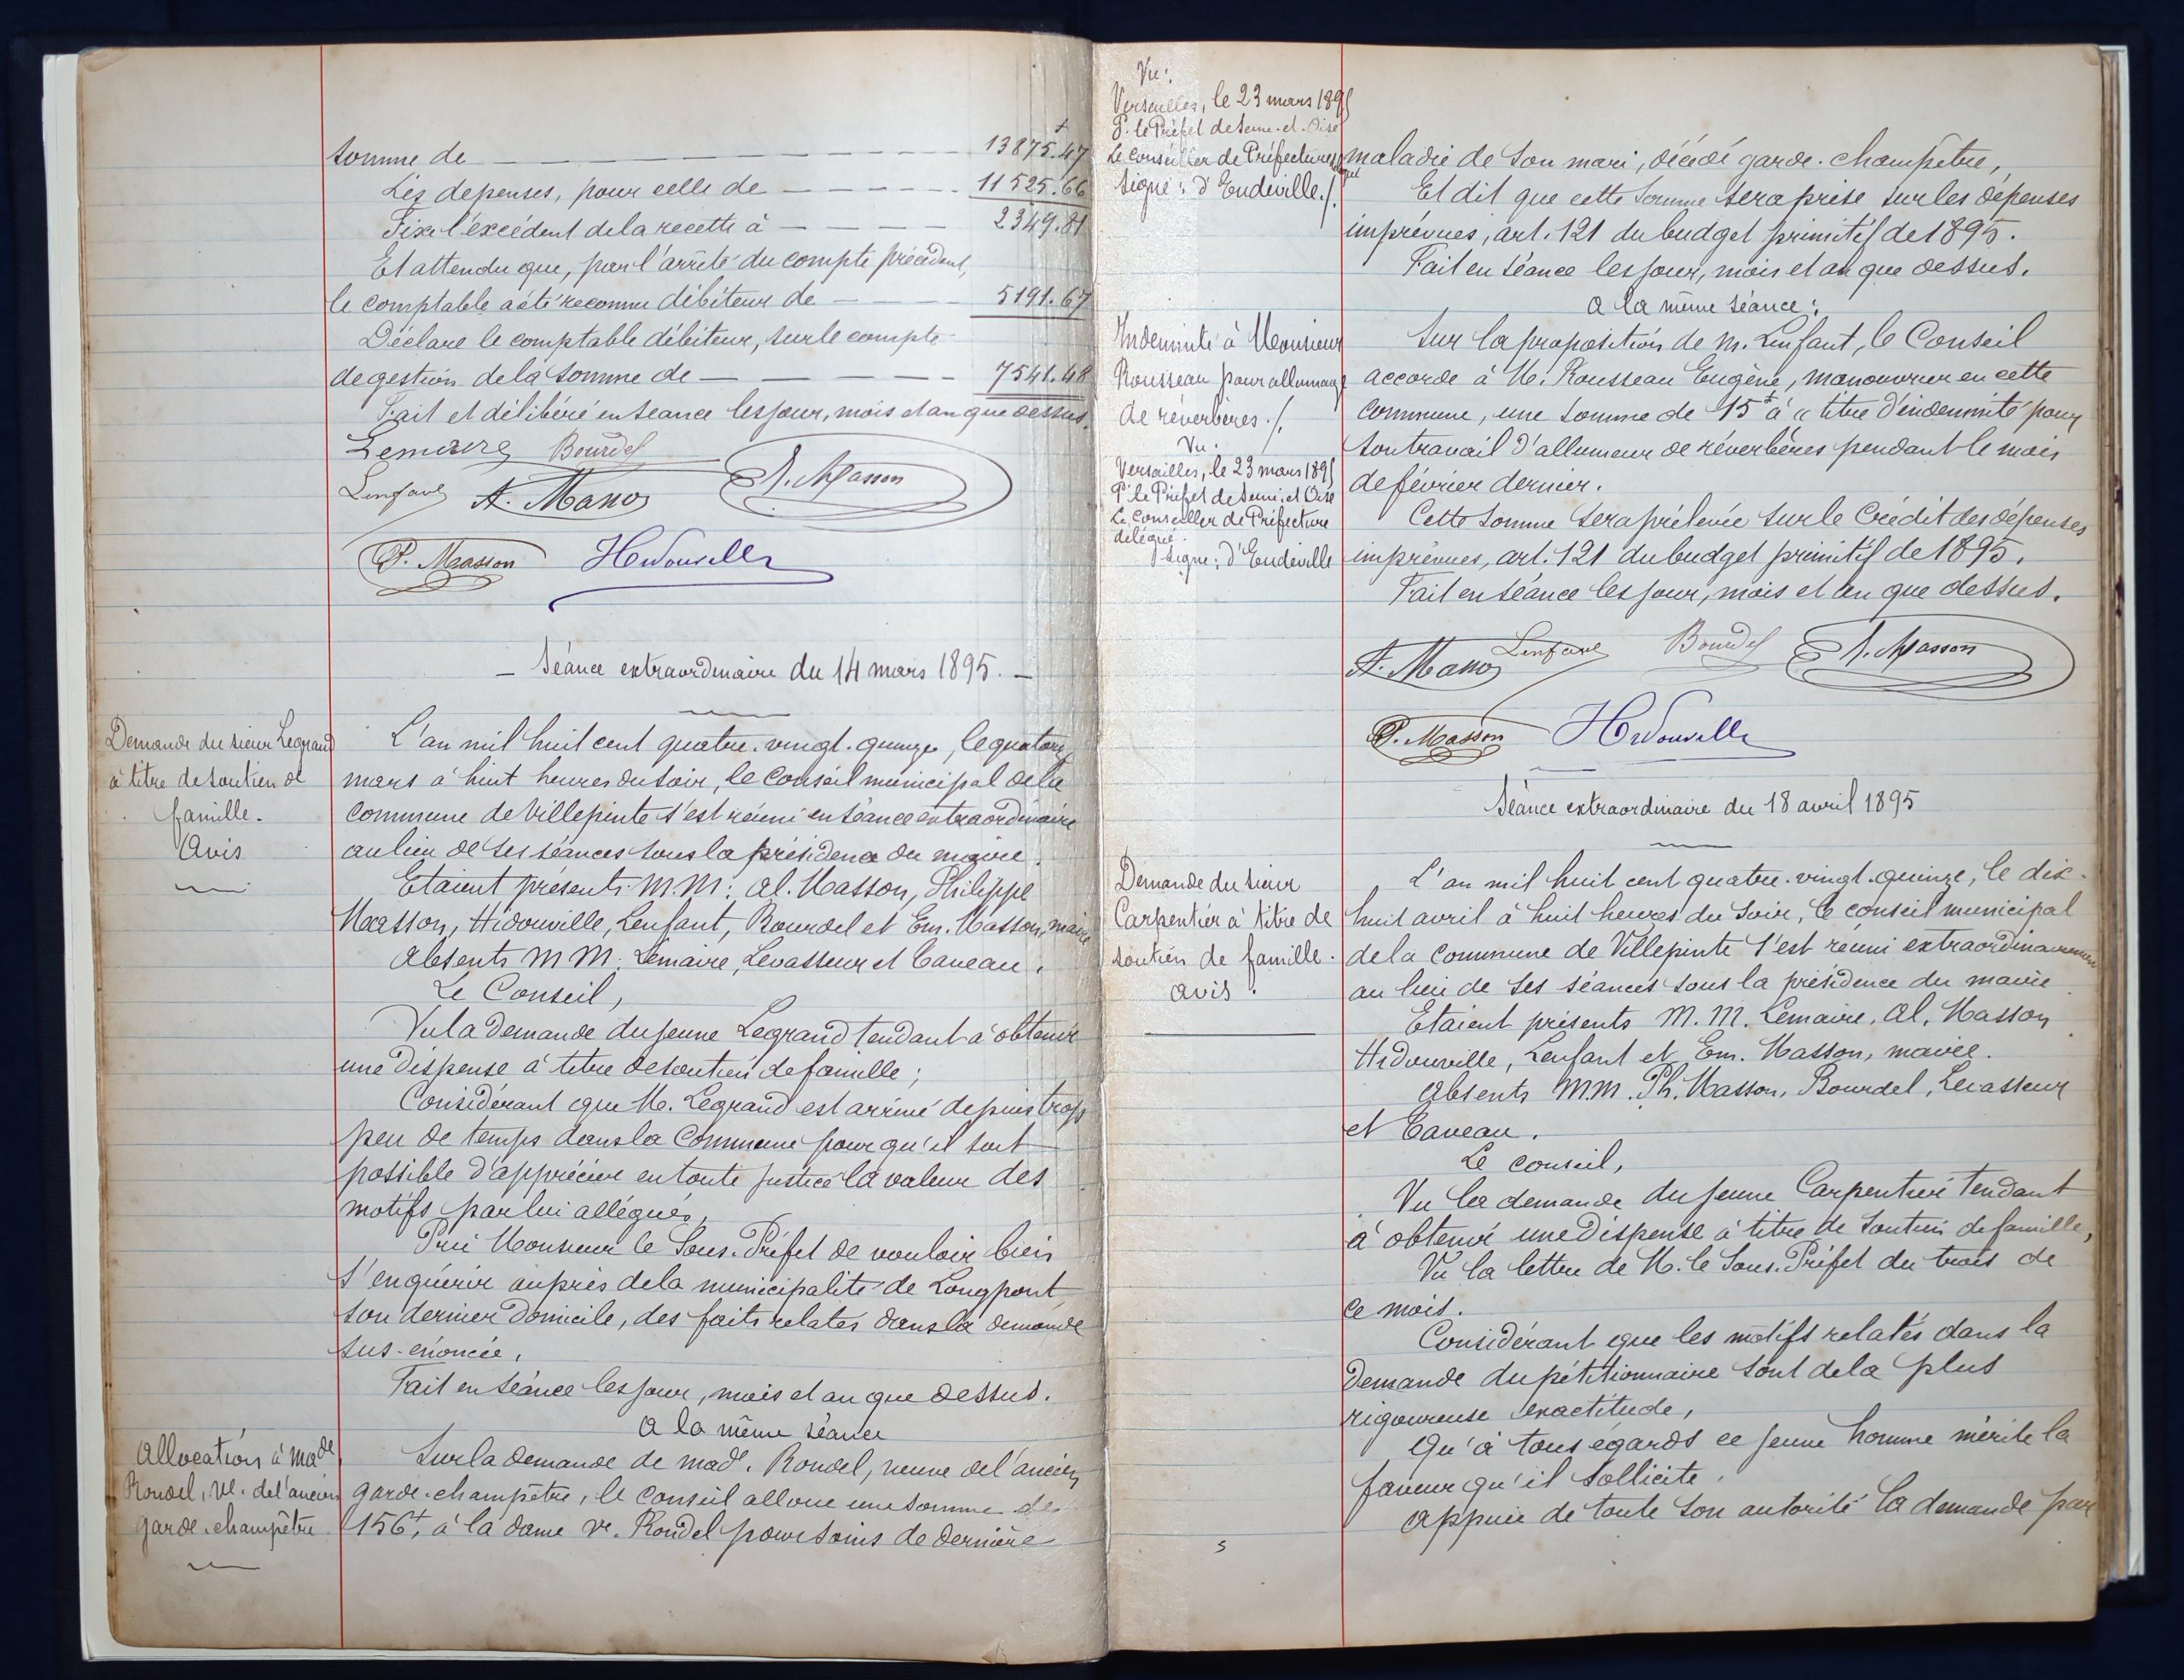 somme de — 13875f.47
Les dépenses, pour celle de — 11525.66
Fixe l'éxcédent de la recette à — 2349.81
Et attendu que, par l'arrêté du compte précédent,
le comptable a été reconnu débiteur de — 5191.67
Déclare le comptable débiteur, sur le compte
de gestion de la somme de — 7541.48
Fait et délibéré en séance les jour, mois et an que dessus.
Lemaire Bourdel
Lenfant A. Masson
P. Masson Hidouville
— Séance extraordinaire du 14 mars 1895. —
Demande du sieur Legrand
à titre de soutien de
famille.
Avis
L'an mil huit cent quatre-vingt-quinze, le quatorze
mars à huit heures du soir, le Conseil municipal de la
commune de Villepinte s'est réuni en séance extraordinaire
au lieu de ses séances sous la présidence du maire.
Etaient présents M.M: Al. Masson, Philippe
Masson, Hidouville, Lenfant, Bourdel et Em. Masson, maire
Absents M M. Lemaire, Levasseur et Caveau.
Le Conseil,
Vu la demande du jeune Legrand tendant à obtenir
une dispense à titre de soutien de famille;
Considérant que M. Legrand est arrivé depuis trop
peu de temps dans la Commune pour qu'il soit
possible d'apprécier en toute justice la valeur des
motifs par lui allégués,
Prie Monsieur le Sous-Préfet de vouloir bien
s'enquérir auprès de la municipalité de Longpont
son dernier domicile, des faits relatés dans la demande
sus-énoncée,
Fait en séance les jour, mois et an que dessus.
A la même séance
Allocation à made
Rondel, ve. de l'ancien
garde-champêtre
Sur la demande de made. Rondel, veuve de l'ancien
garde-champêtre, le Conseil alloue une somme de
156f, à la dame ve. Rondel pour soins de dernière
Vu:
Versailles, le 23 mars 1895
P. le Préfet de Seine-et-Oise
Le Conseiller de Préfecture délégué
Signé: d'Eudeville./.
maladie de son mari, décédé garde-champêtre,
Et dit que cette somme sera prise sur les dépenses
imprévues, art. 121 du budget primitif de 1895.
Fait en séance les jour, mois et an que dessus.
A la même séance:
Indemnité à Monsieur
Rousseau pour allumage
de réverbères./.
Vu:
Versailles, le 23 mars 1895
Pr le Préfet de Seine-et-Oise
Le Conseiller de Préfecture
délégué.
Signé: d'Eudeville
Sur la proposition de M. Lenfant, le Conseil
accorde à M. Rousseau Eugène, manouvrier en cette
commune, une somme de 15f à " titre d'indemnité pour
son travail d'allumeur de réverbères pendant le mois
de février dernier.
Cette somme sera prélevée sur le Crédit des dépenses
imprévues, art. 121 du budget primitif de 1895.
Fait en séance les jour, mois et an que dessus.
Lenfant Bourdel A. Masson
P. Masson Hidouville
Séance extraordinaire du 18 avril 1895
Demande du sieur
Carpentier à titre de
soutien de famille.
avis.
L'an mil huit cent quatre-vingt-quinze, le dix-
huit avril à huit heures du soir, le conseil municipal
de la commune de Villepinte s'est réuni extraordinairement
au lieu de ses séances sous la présidence du maire.
Etaient présents M. M. Lemaire, Al. Masson
Hidouville, Lenfant et Em. Masson, maire.
Absents M.M. Ph. Masson, Bourdel, Levasseur
et Caveau.
Le conseil,
Vu la demande du jeune Carpentier tendant
à obtenir une dispense à titre de soutien de famille,
Vu la lettre de M. le Sous-Préfet du trois de
ce mois.
Considérant que les motifs relatés dans la
demande du pétitionnaire sont de la plus
rigoureuse exactitude,
Qu'à tous égards ce jeune homme mérite la
faveur qu'il sollicite.
Appuie de toute son autorité la demande par